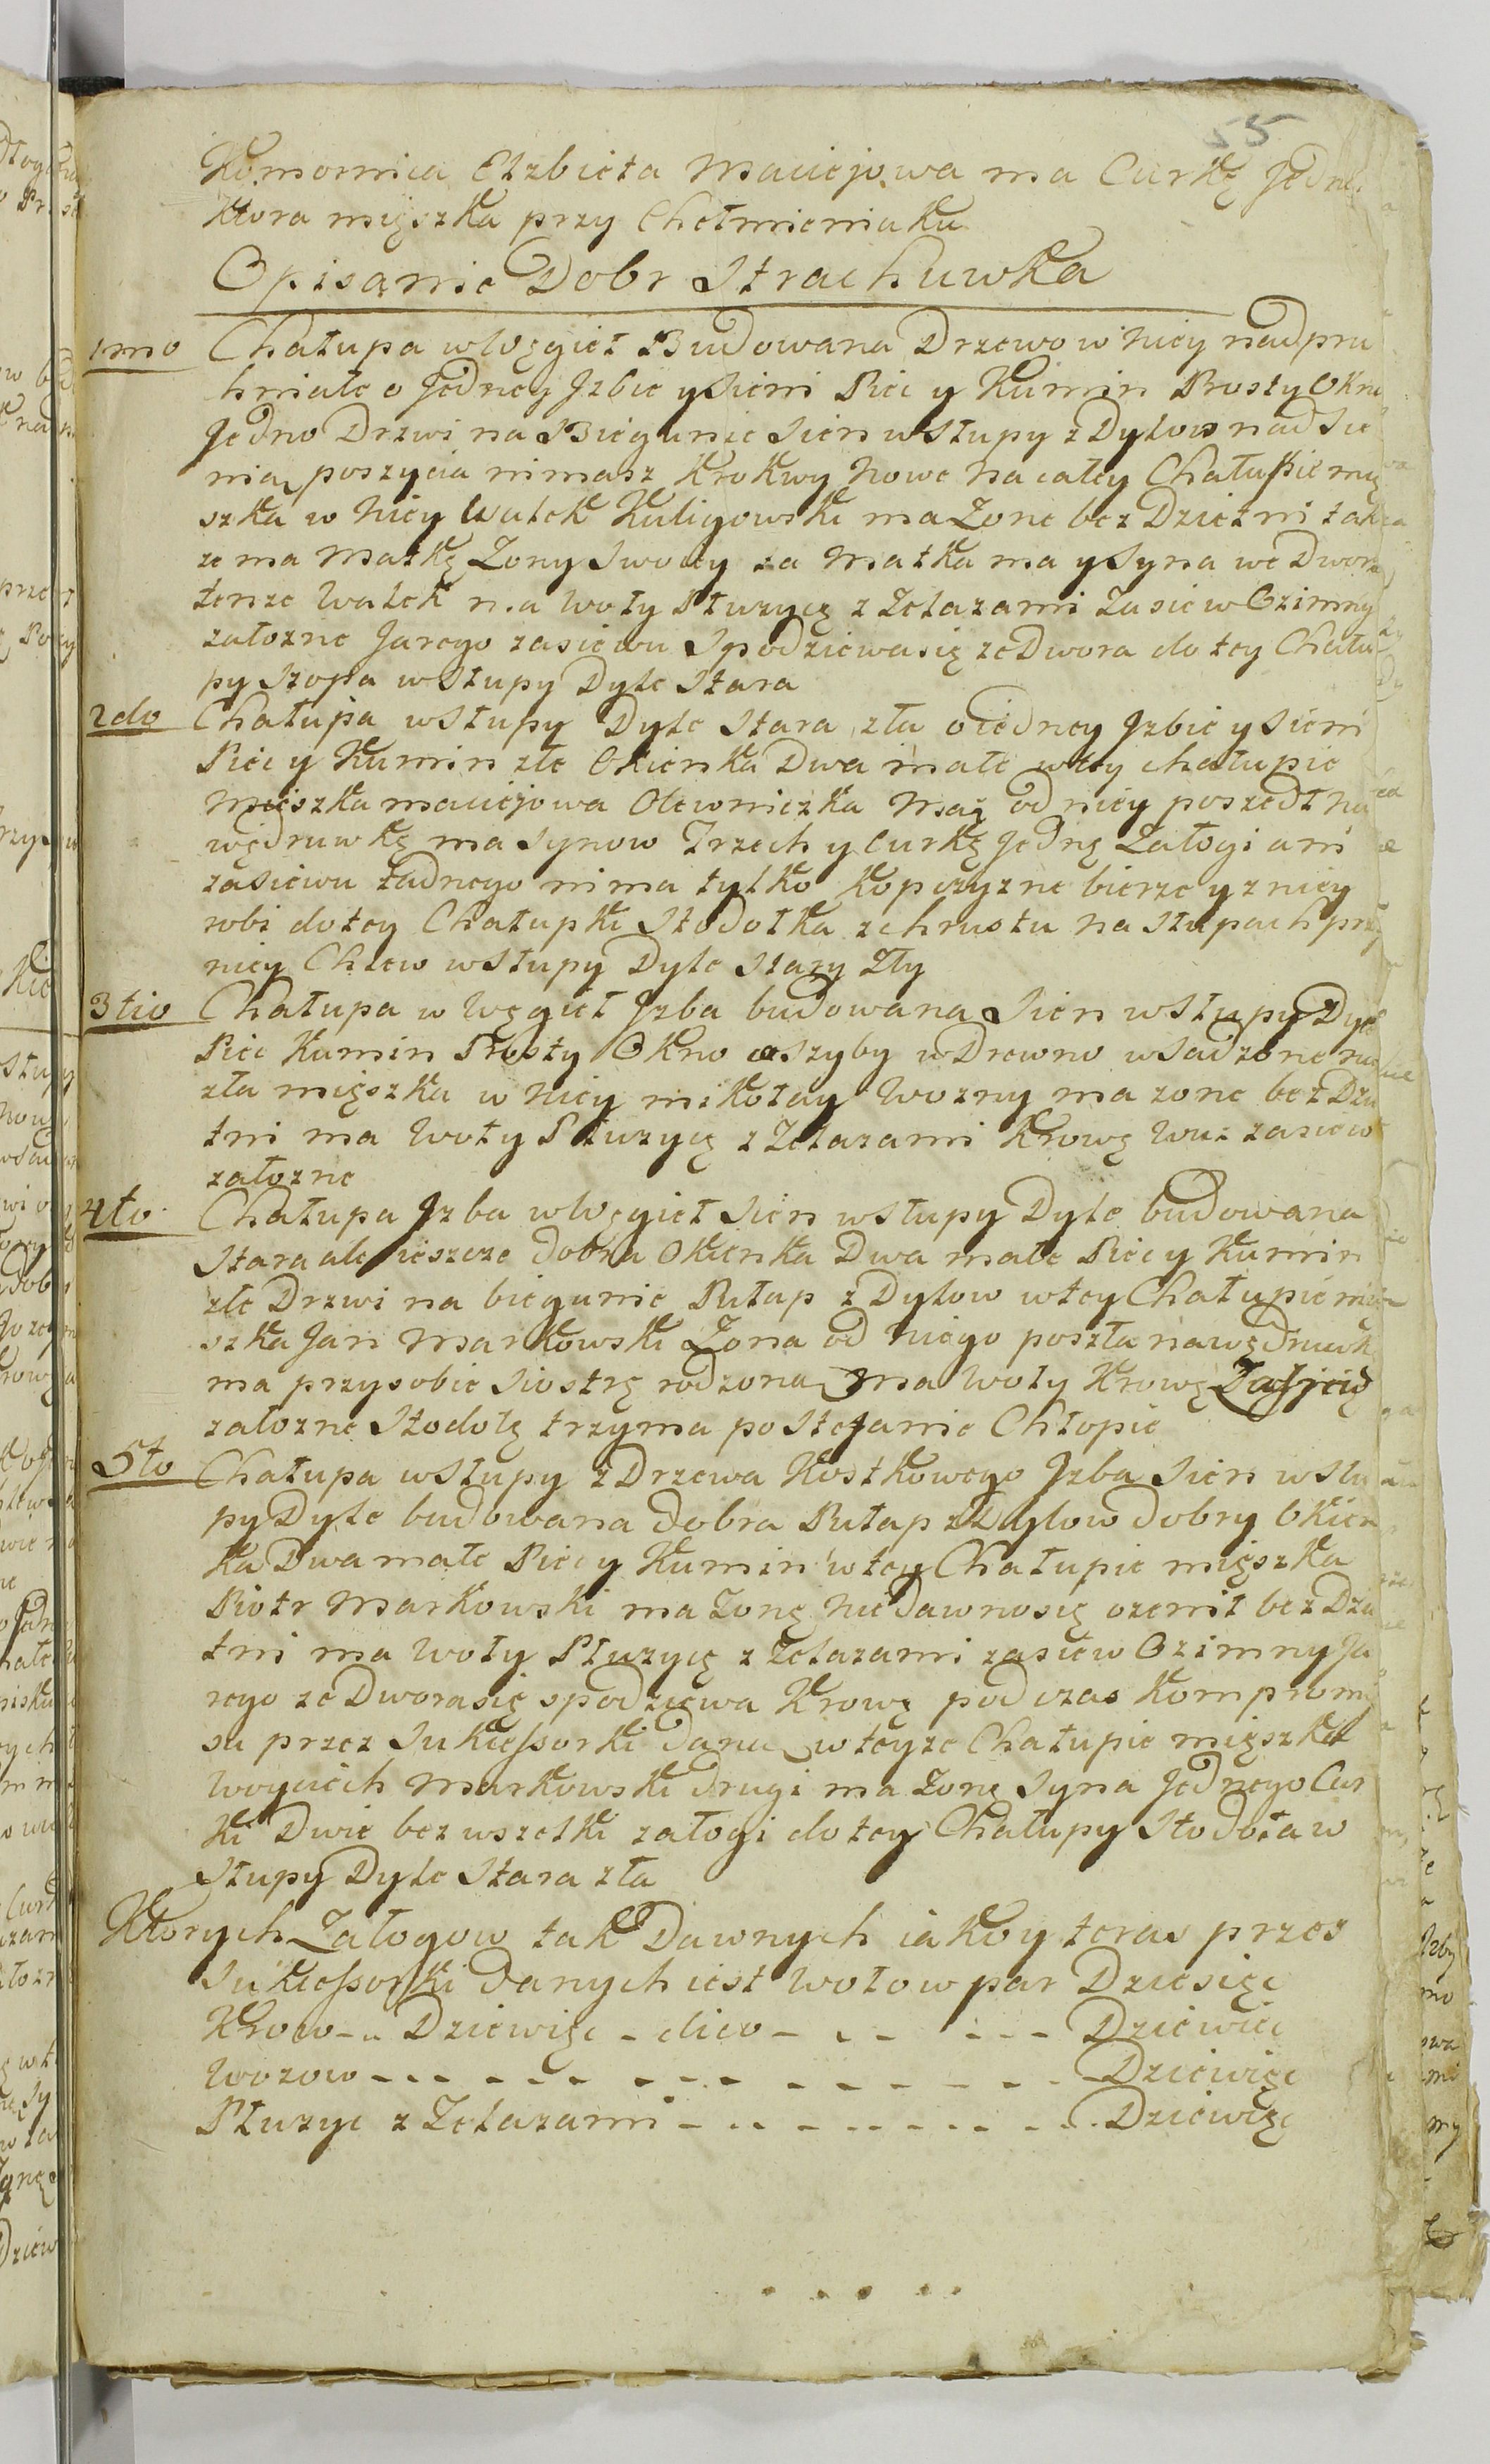 55
Komornica Elzbieta Maciejowa ma Curkę Jedne
ktora męszka przy Chełmieniaku
Opisanie Dobr Strachuwka
1mo Chałupa wlęgieł Budowana Drzewo w Niey nadpru
hniałe o Jedney Jzbie y Sieni Piec y Kumin Prosty Okno
Jedno Drzwi na Biegunie Sien wSłupy z Dylow nad Sie
nią poszycia nimasz Krokwy Nowe na całey Chałupie mię
szka w Niey Walek Kuligowski ma Zone bez Dzietni tak
ze ma Matkę Zony Swoiey ta Matka ma y Syna we Dworze
tenze Walek ma Woły Płuzycę z Zelazami Zasiew Ozimny
załozne Jarego zasiewu Spodziewasię ze Dwora do tey Chału
py Szopa wSłupy Dyle Stara
2do Chałupa wSłupy Dyle Stara zła o iedney Jzbie y Sieni
Piec y Kumin złe Okienka Dwa małe wtey chałupie
Mięszka maciejowa Olewniczka Mąż od niey poszedł na
wędruwkę ma Synow Trzech y Curkę Jednę Załogi ani
zasiewu żadnego nima tylko Kopczyzne bierze y z niey
robi do tey Chałupki Stodołka z chrustu na Słupach przy
niey Chlew wSłupy Dyle Stary Zły
3tio Chałupa w Węgieł Jzba budowana Sien wSłupy Dyle
Piec Kumin Prosty Okno szyby w Drewno wSadzone
zła mięszka w Niey mikołay Wozny ma zone bez Dzie
tni ma Woły Płuzycę z Zelazami Krowę Wuz zasiew
załozne
4to Chałupa Jzba wlęgieł Sien wSłupy Dyle budowana
Stara ale ieszcze dobra Okienka Dwa małe Piec y Kumin
złe Drzwi na biegunie Pułap z Dylow wtey Chałupie mię
szka Jan Markowski Zona od niego poszła nawędruwkę
ma przysobie Siostrę rodzoną ma Woły Krowę
załozne Stodolę trzyma po Stefanie Chłopie
5to Chałupa wSłupy z Drzewa Kostkowego Jzba Sien wSłu
py Dyle budowana dobra Pułap z Dylow dobry Okien
ka Dwa małe Piec y Kumin wtey Chałupie mięszka
Piotr Markowski ma Zonę niedawnosię ozenił bez Dzie
tni ma Woły Płuzycę z Zelazami zasiew Ozimny Ja
rego ze Dworasię spodziewa Krowę podczas Kompromi
su przez Sukiessorki daną w teyze Chałupie mięszka
Woyciech Markowski drugi ma Zonę Syna Jednego Cur
ki Dwie bez wszelki załogi do tey Chałupy Stodoła w
Słupy Dyle Stara zła
Ktorych Załogow tak Dawnych iako y teras przes
Sukiessorki danych iest Wołow par Dziesięć
Krow - - Dziewięć - dico - - - - - - Dziewięć
Wozow - - - - - - - - - - - - - Dziewięć
Płuzyc z Zelazami - - - - - - - - - - Dziewięć